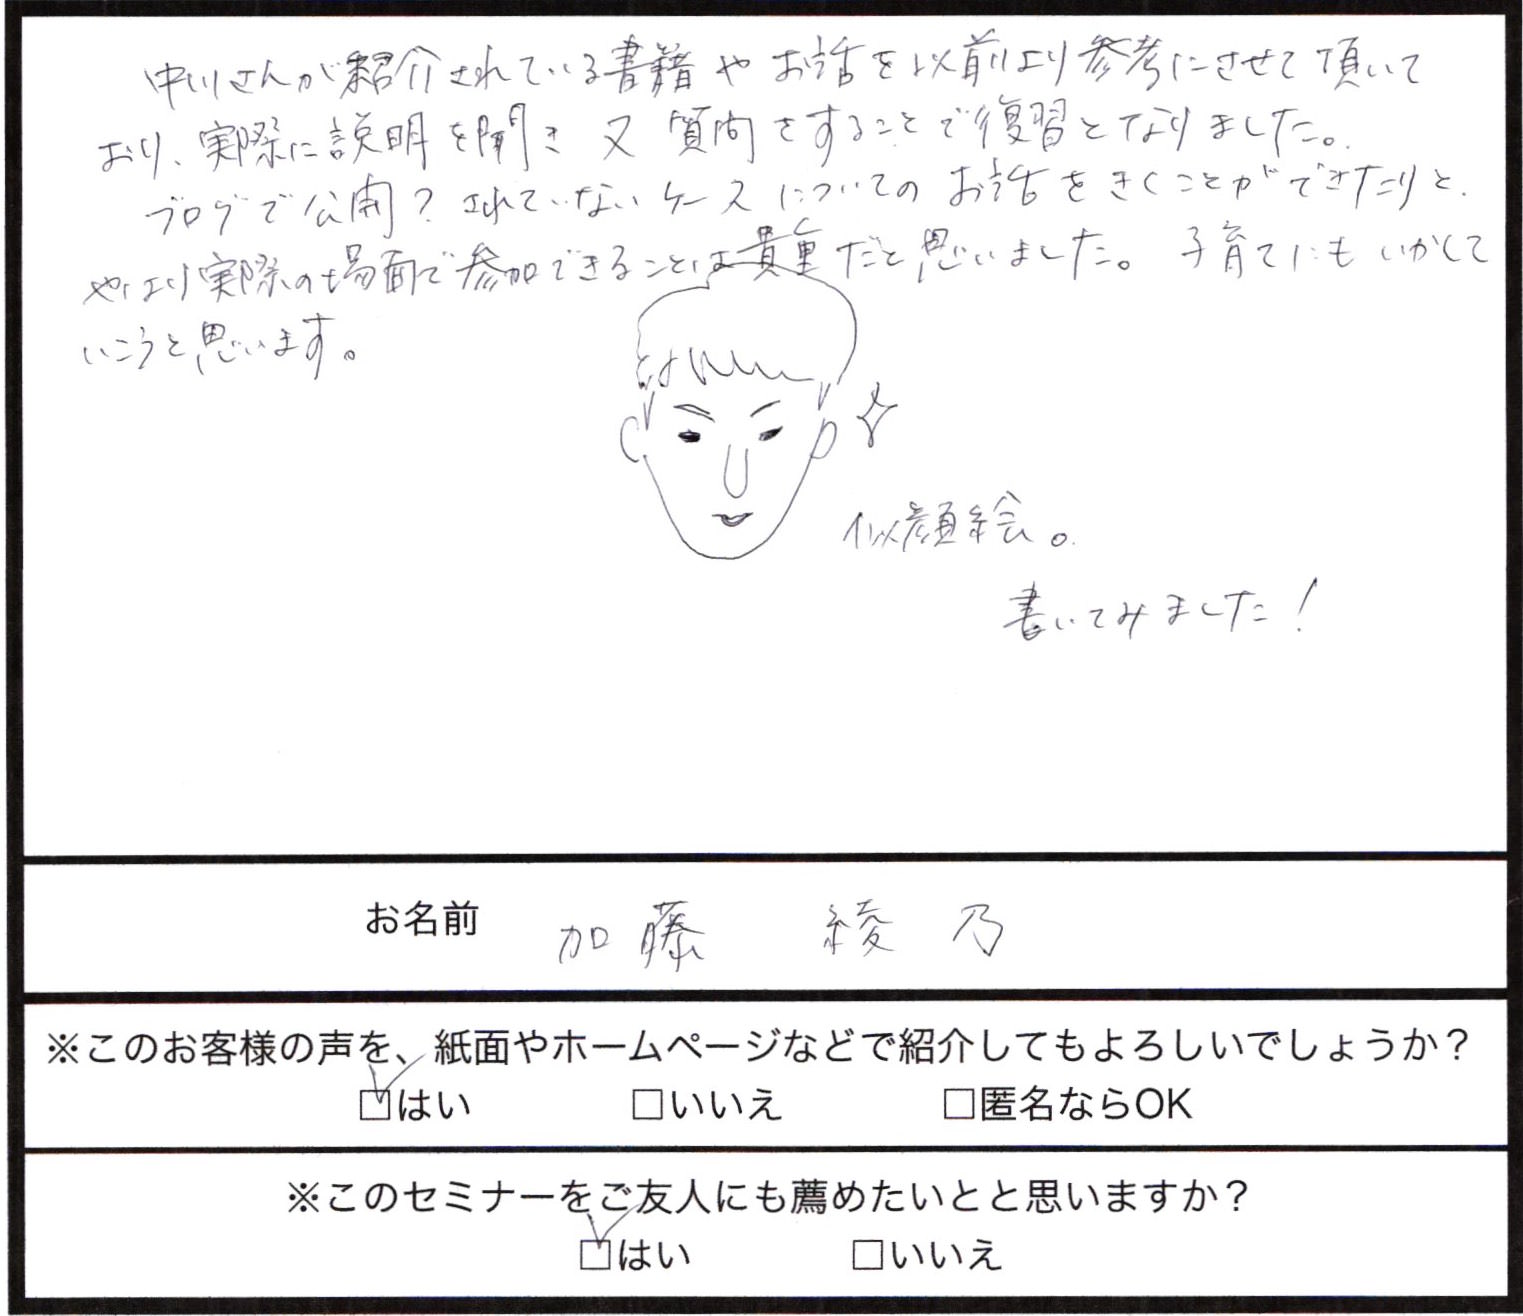 中川さんが紹介されている書籍やお話を以前より参考にさせて頂いて
おり、実際に説明を聞き又質問をすることで復習となりました。
ブログで公開？されていないケースについてのお話をきくことができたりと、
やはり実際の場面で参加できることは貴重だと思いました。子育てにもいかして
いこうと思います。
似顔絵。
書いてみました！
お名前 加藤 綾乃
※このお客様の声を、紙面やホームページなどで紹介してもよろしいでしょうか？
□はい □いいえ □匿名ならOK
※このセミナーをご友人にも薦めたいとと思いますか？
□はい □いいえ